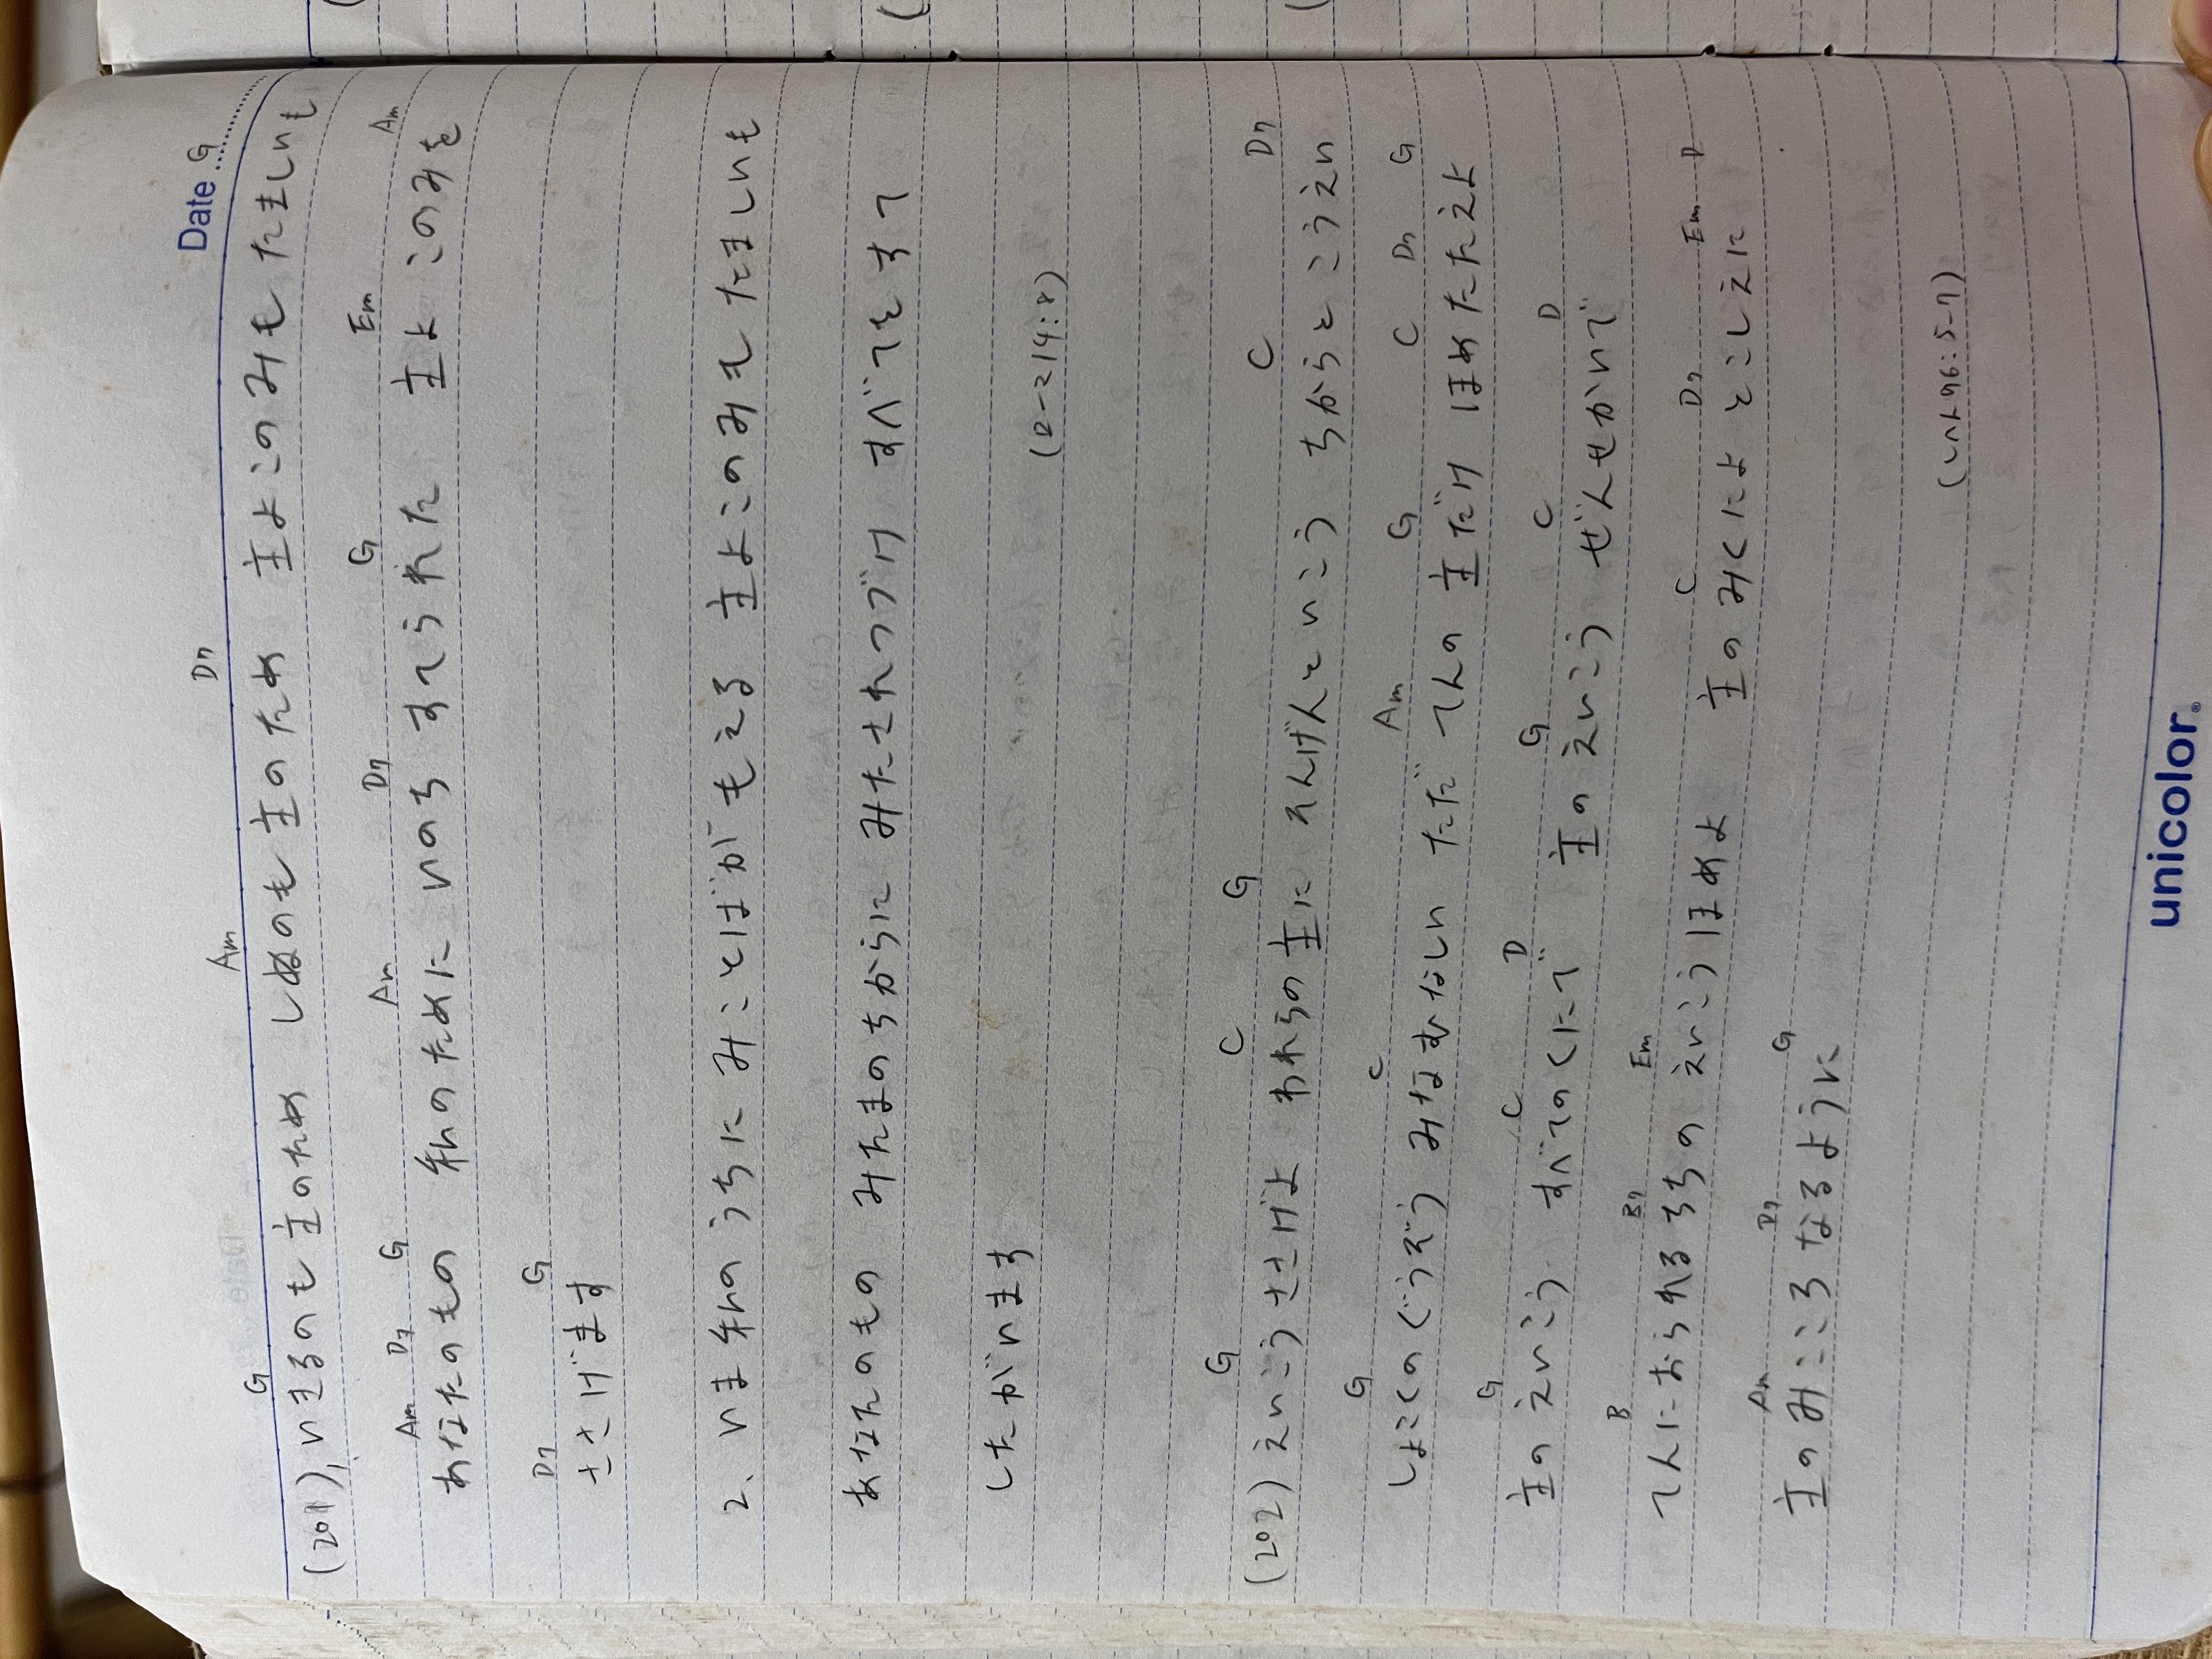 Date G
G Am D7
(201) 1, いきるのも主のため しぬのも主のため 主よこのみも たましいも
Am D7 G Am D7 G Em Am
あなたのもの 私のために いのち すてられた 主よ このみを
D7 G
ささげます
2、いま私のうちに みことばがもえる 主よこのみも たましいも
あなたのもの みたまのちからに みたされつづけ すべてをすて
したがいます
(ロ-マ14:8)
G C G C D7
(202) えいこうささげよ われらの主に けんげんといこう ちからとこうえい
G C Am G C D7 G
しょこくのぐうぞう みなむなしい ただてんの主だけ ほめたたえよ
G C D G C D
主のえいこう すべてのくにで 主のえいこう ぜんせかいで
B B7 Em C D7 Em D
てんにおられるちちの えいこうほめよ 主のみくによとこしえに
Am D7 G
主のみこころなるように
(しへん96:5-7)
unicolor®